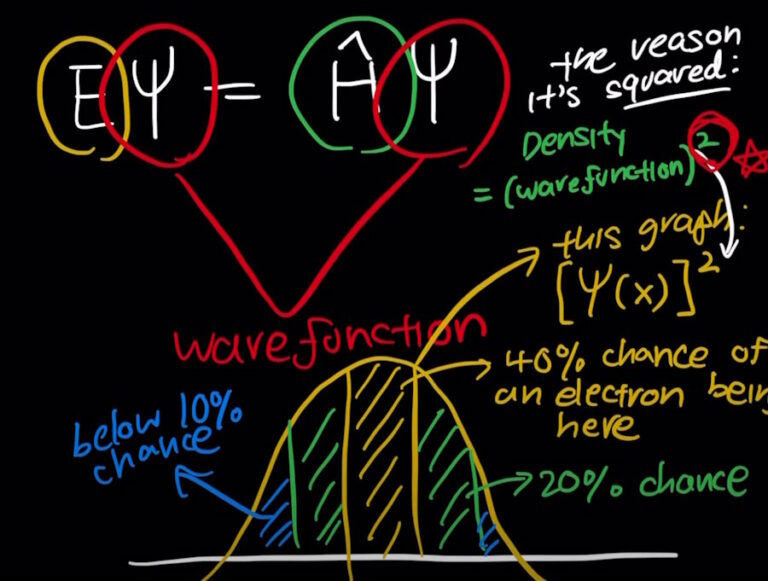 EΨ = ĤΨ
the reason
it's squared:
Density
= (wavefunction)²
this graph:
[Ψ(x)]²
wavefunction
40% chance of
an electron being
here
below 10%
chance
20% chance